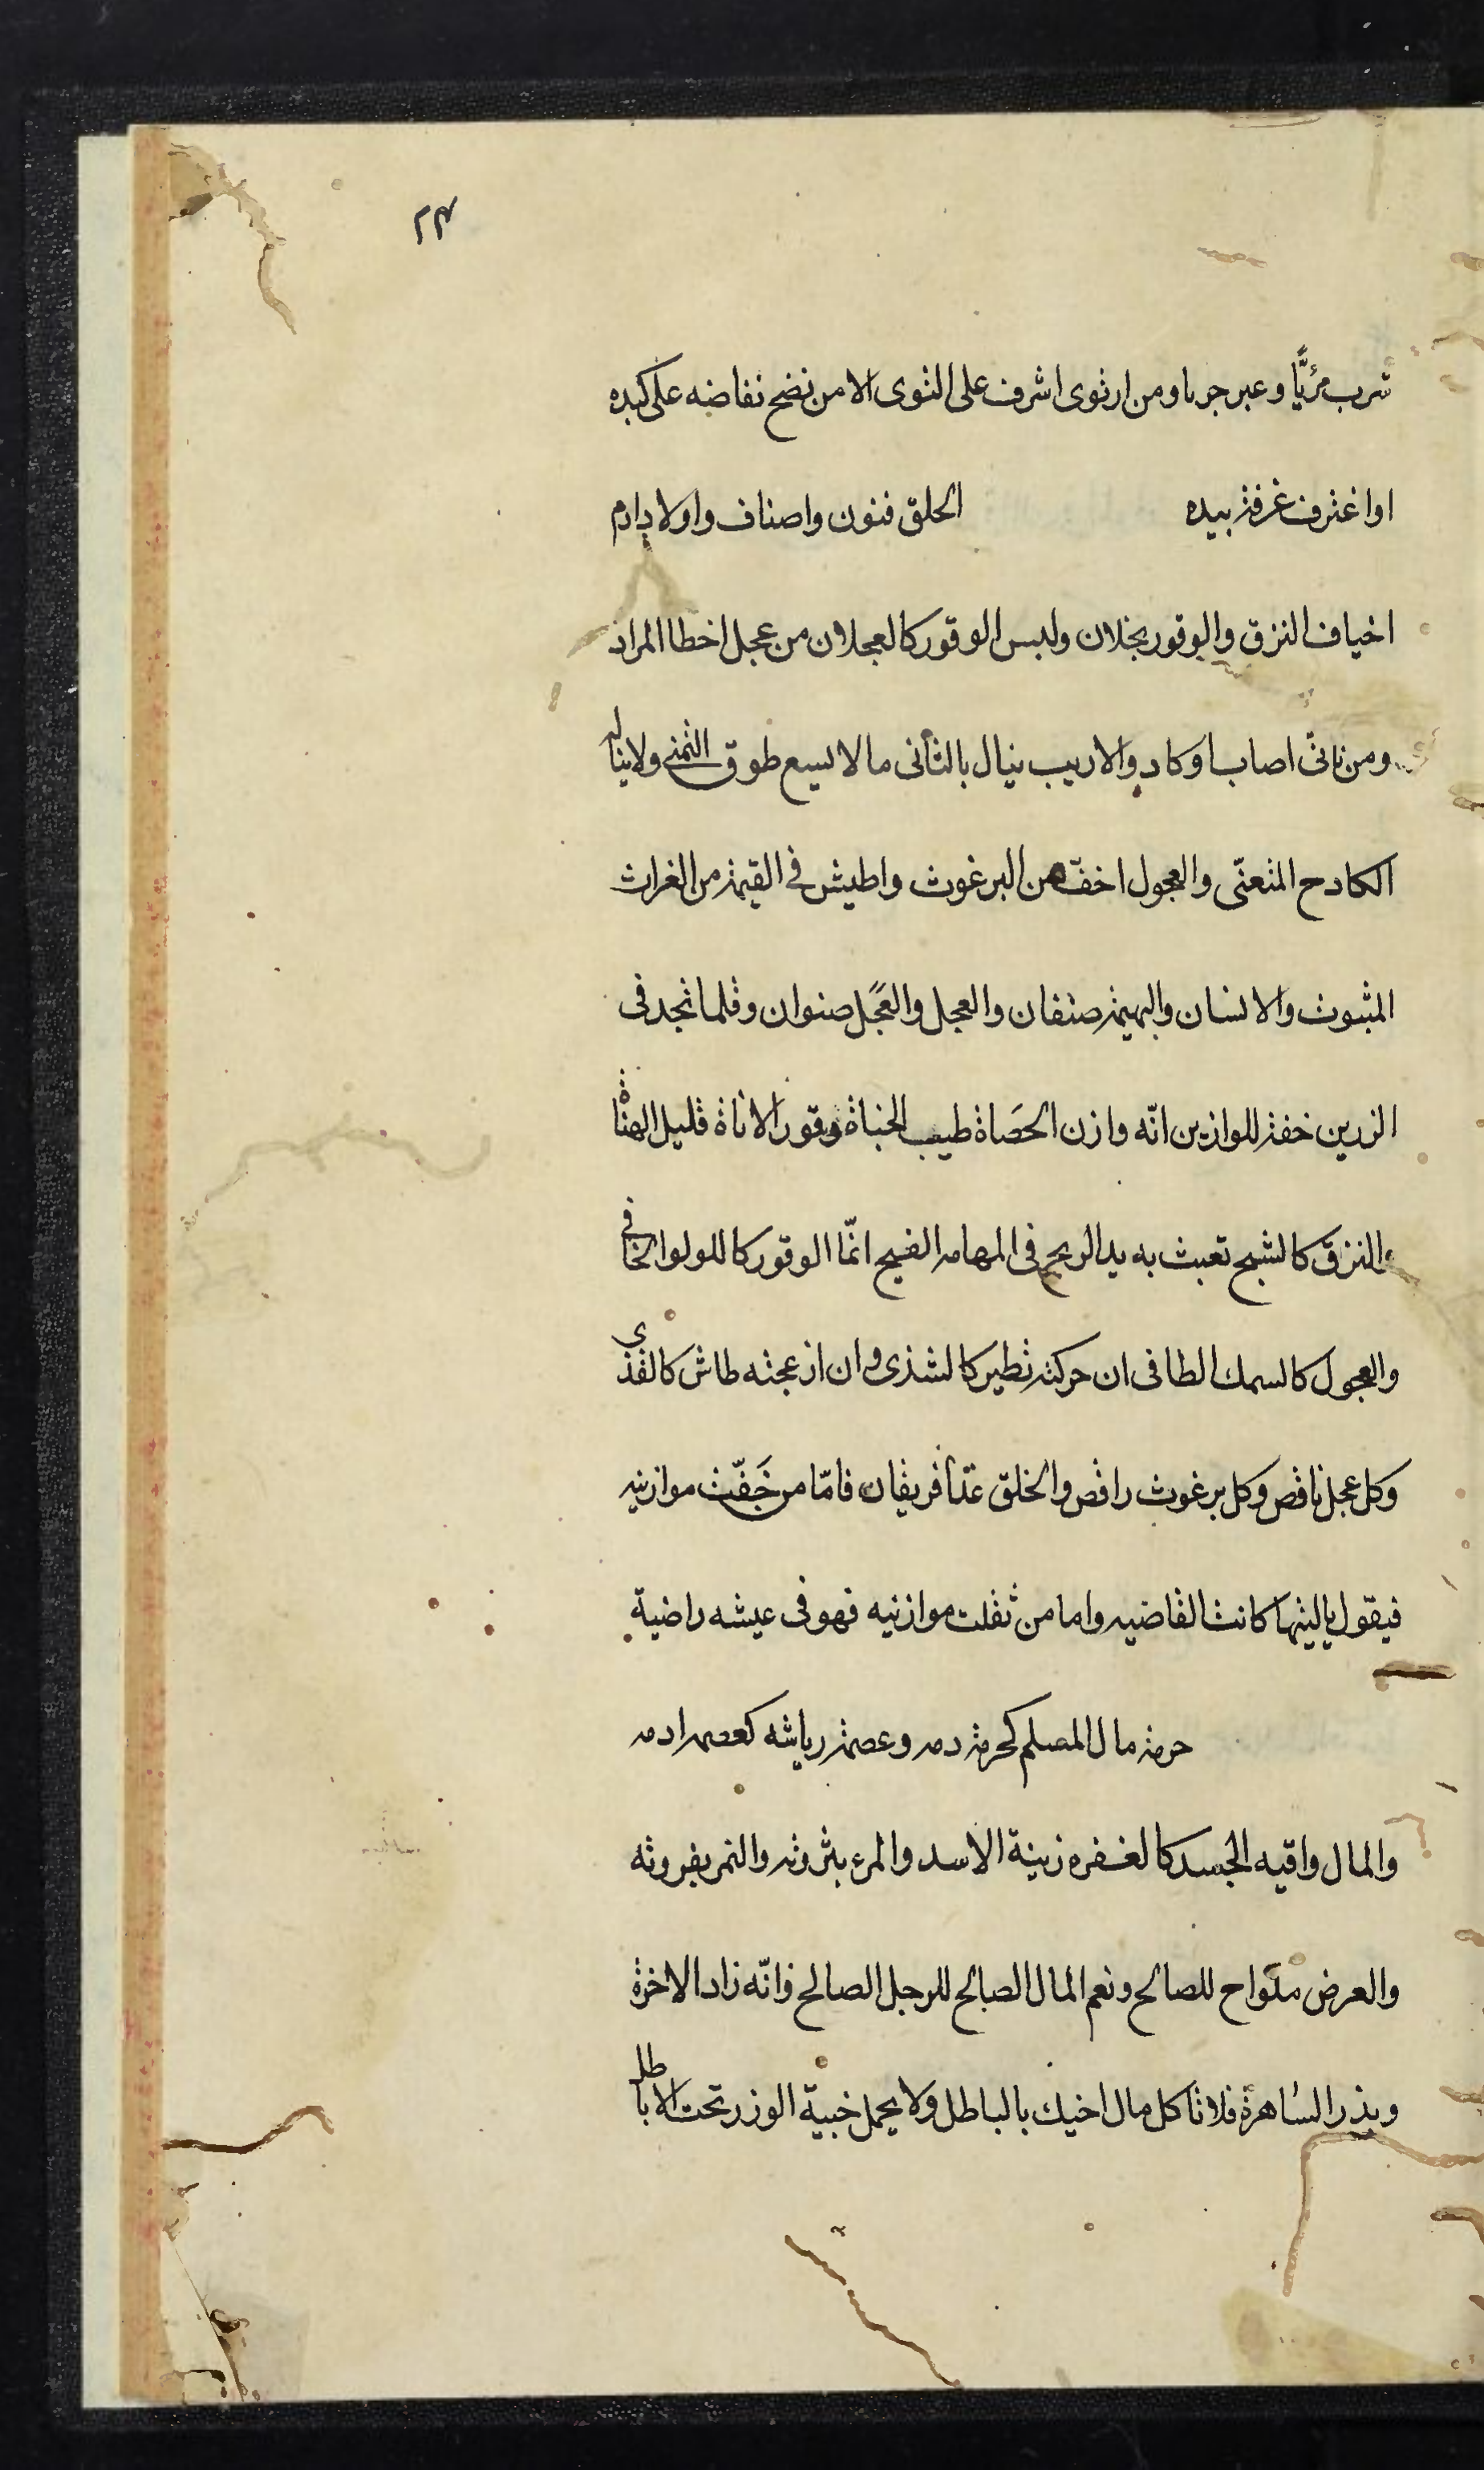 ٢٣
شرب مرّيًّا وعبر جريا ومن ارتوى اشرف على التوى الا من نضح نفاضه على كبده
او اغترف غرفة بيده الخلق فنون واصناف واولاد ادم
اخياف النزق والوقور يخلان وليس الوقور كالعجلان من عجل اخطا المراد
ومن تانّى اصاب او كاد والاريب ينال بالتأنى ما لا يسع طوق التمنى ولا يناله
الكادح المتعنّى والعجول اخفّ من البرغوث واطيش فى القيمة من الفراش
المبثوث والانسان والبهيمة صنفان والعجل والعَجَل صنوان وقلما تجد فى
الرزين خفة للوازين انّه وازن الحَصاة طيب الجناة وقور الاناة قليل الهناة
والنزق كالشبح تعبث به يد الريح فى المهامه الفيح انمّا الوقور كاللولوا الخافى
والعجول كالسمك الطافى ان حركته تطير كالشذى وان ازعجته طاش كالقذى
وكل عجل ناقص وكل برغوث راقص والخلق غدًا فريقان فامّا من خَفّت موازينه
فيقول ياليتها كانت القاضيه واما من ثقلت موازنيه فهو فى عيشه راضية
حرمة مال المسلم كحرمة دمه وعصمة رياشه كعصمه ادمه
والمال واقيه الجسد كالغفره زينة الاسد والمرء بثروته والنمر بفروته
والعرض متواح للصالح ونعم المال الصالح للرجل الصالح فانّه زاد الاخرة
وبذر الساهرة فلا تاكل مال اخيك بالباطل ولا يحمل خبية الوزر تحت الاباطل